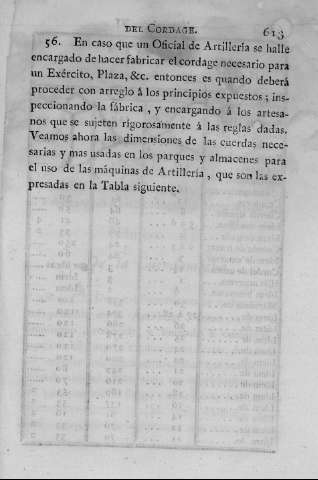 DEL CORDAGE. 613
56. En caso que un Oficial de Artillería se halle
encargado de hacer fabricar el cordage necesario para
un Exército, Plaza, &c. entonces es quando deberá
proceder con arreglo á los principios expuestos; ins-
peccionando la fábrica, y encargando á los artesa-
nos que se sujeten rigorosamente á las reglas dadas.
Veamos ahora las dimensiones de las cuerdas nece-
sarias y mas usadas en los parques y almacenes para
el uso de las máquinas de Artillería, que son las ex-
presadas en la Tabla siguiente.